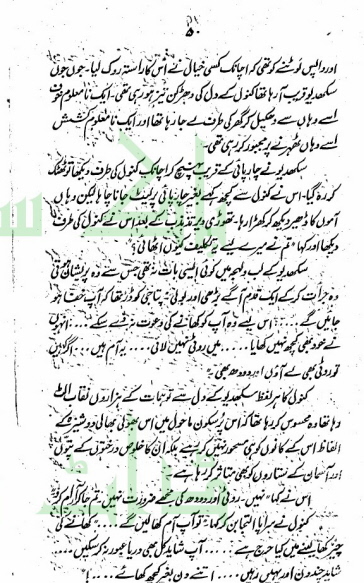 ۵۰
اور واپس لوٹنے کو تھی کہ اچانک کسی خیال نے اس کا راستہ روک لیا۔ جوں جوں
سکھدیو قریب آ رہا تھا کنول کے دل کی دھڑکن تیز ہو رہی تھی۔ ایک نامعلوم خوف
اسے وہاں سے دھکیل کر گھر کی طرف لے جا رہا تھا اور ایک نامعلوم کشش
اسے وہاں ٹھہرنے پر مجبور کر رہی تھی
سکھدیو نے چارپائی کے قریب پہنچ کر اچانک کنول کی طرف دیکھا تو ٹھٹک
کر رہ گیا۔ اس نے کنول سے کچھ کہے بغیر چارپائی پر لیٹ جانا چاہا لیکن وہاں
آموں کا ڈھیر دیکھ کر کھڑا رہا۔ تھوڑی دیر تذبذب کے بعد اس نے کنول کی طرف
دیکھا اور کہا "تم نے میرے لیے یہ تکلیف کیوں اٹھائی؟
سکھدیو کے لب و لہجہ میں کوئی ایسی بات نہ تھی جس سے وہ پریشان ہوتی
وہ جرأت کر کے ایک قدم آگے بڑھی اور بولی "پتا جی کو ڈر تھا کہ آپ خفا ہو
جائیں گے.... اس لیے وہ آپ کو کھانے کی دعوت نہ دے سکے.... انہوں
نے خود بھی کچھ نہیں کھایا..... میں روٹی نہیں لائی.... یہ آم ہیں... اگر کہیں
تو روٹی بھی لے آؤں اور دودھ بھی"
کنول کا ہر لفظ سکھدیو کے دل سے توہمات کے ہزاروں نقاب الٹ
رہا تھا وہ محسوس کر رہا تھا کہ اس پرسکون ماحول میں اس بھولی بھالی دوشیزہ کے
الفاظ اس کے کانوں کو ہی مسحور نہیں کر رہے بلکہ ان کا خلوص درختوں کے پتوں
اور آسمان کے ستاروں کو بھی متاثر کر رہا ہے۔
اس نے کہا "نہیں۔ روٹی اور دودھ کی مجھے ضرورت نہیں۔ تم جا کر آرام کرو
کنول نے سراپا التجا بن کر کہا "تو آپ آم کھا لیں گے.... کھانے کی
چیز کھا لینے میں کیا حرج ہے.... آپ شاید کل بھی دریا عبور نہ کر سکیں....
شاید چند دن اور یہیں رہیں.... اتنے دن بغیر کچھ کھائے....!"